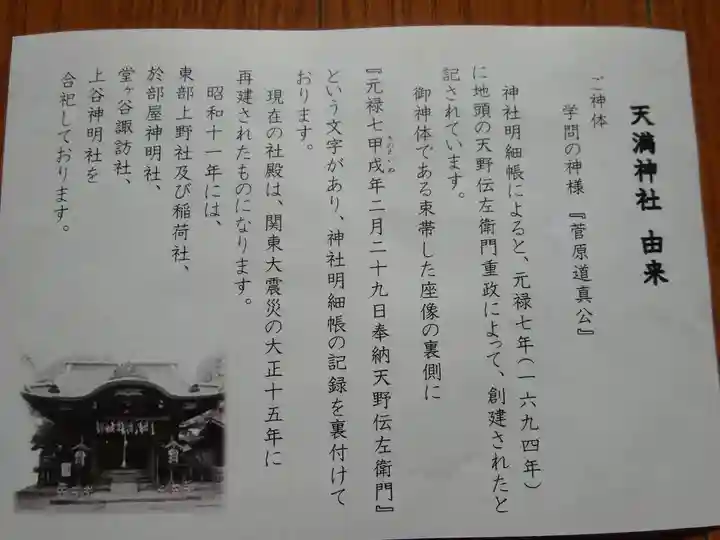 天満神社 由来
ご神体
学問の神様『菅原道真公』
神社明細帳によると、元禄七年(一六九四年)
に地頭の天野伝左衛門重政によって、創建されたと
記されています。
御神体である束帯した座像の裏側に
『元禄七甲戌年二月二十九日奉納天野伝左衛門』
きのえいぬ
という文字があり、神社明細帳の記録を裏付けて
おります。
現在の社殿は、関東大震災の大正十五年に
再建されたものになります。
昭和十一年には、
東部上野社及び稲荷社、
於部屋神明社、
堂ヶ谷諏訪社、
上谷神明社を
合祀しております。